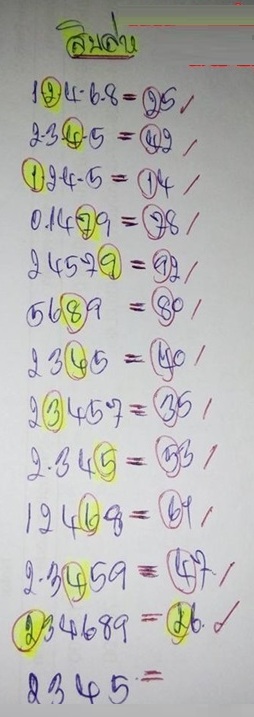 สิบล่าง
124·6·8 = 25 /
2·3·4·5 = 42 /
1·24·5 = 14 /
0.1479 = 78 /
24579 = 92 /
5689 = 80 /
2345 = 40 /
23457 = 35 /
2·345 = 53 /
12468 = 61 /
2·3459 = 47 /
234689 = 26 ✓
2345 =